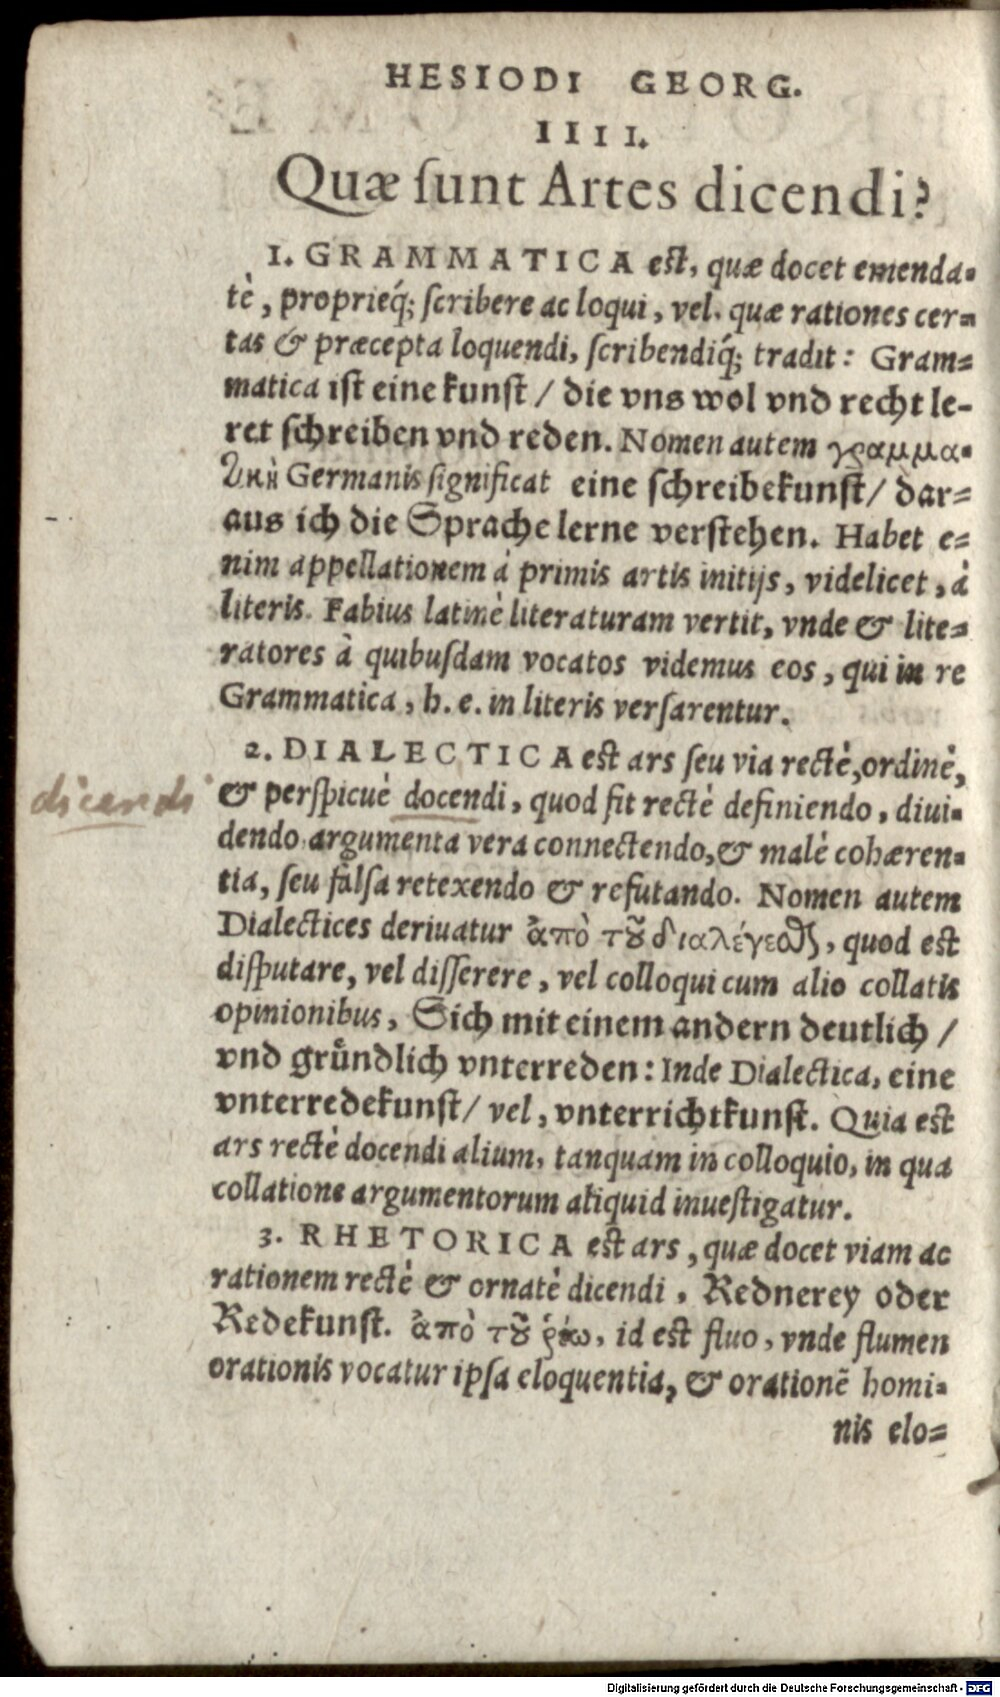 HESIODI GEORG.
IIII.
Quæ ſunt Artes dicendi?
1. GRAMMATICA eſt, quæ docet emenda-
tè, proprieq́; ſcribere ac loqui, vel, quæ rationes cer-
tas & præcepta loquendi, ſcribendiq́; tradit: Gram-
matica iſt eine kunſt / die vns wol vnd recht le-
ret ſchreiben vnd reden. Nomen autem γραμμα-
τικὴ Germanis ſignificat eine ſchreibekunſt / dar-
aus ich die Sprache lerne verſtehen. Habet e-
nim appellationem á primis artis initijs, videlicet, à
literis. Fabius latinè literaturam vertit, vnde & lite-
ratores à quibuſdam vocatos videmus eos, qui in re
Grammatica, h. e. in literis verſarentur.
2. DIALECTICA eſt ars ſeu via rectè, ordinè,
dicendi & perſpicuè docendi, quod fit rectè definiendo, diui-
dendo argumenta vera connectendo, & malè cohæren-
tia, ſeu falſa retexendo & refutando. Nomen autem
Dialectices deriuatur ἀπὸ τοῦ διαλέγεσθαι, quod eſt
diſputare, vel diſſerere, vel colloqui cum alio collatis
opinionibus, Sich mit einem andern deutlich /
vnd gruͤndlich vnterreden: Inde Dialectica, eine
vnterredekunſt / vel, vnterrichtkunſt. Quia eſt
ars rectè docendi alium, tanquam in colloquio, in qua
collatione argumentorum aliquid inueſtigatur.
3. RHETORICA eſt ars, quæ docet viam ac
rationem rectè & ornatè dicendi, Rednerey oder
Redekunſt. ἀπὸ τοῦ ῥέω, id eſt fluo, vnde flumen
orationis vocatur ipſa eloquentia, & orationẽ homi-
nis elo-
Digitalisierung gefördert durch die Deutsche Forschungsgemeinschaft - DFG